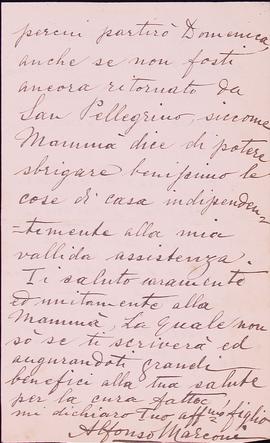 perciò partirò Domenica,
anche se non fosti
ancora ritornato da
San Pellegrino, siccome
Mammà dice di potere
sbrigare benissimo le
cose di casa indipenden=
=temente alla mia
vallida assistenza.
Ti saluto caramente
ed unitamente alla
Mammà, la quale non
sò se ti scriverà ed
augurandoti grandi
benefici alla tua salute
per la cura fatta
mi dichiaro tuo affmo figlio
Alfonso Marconi